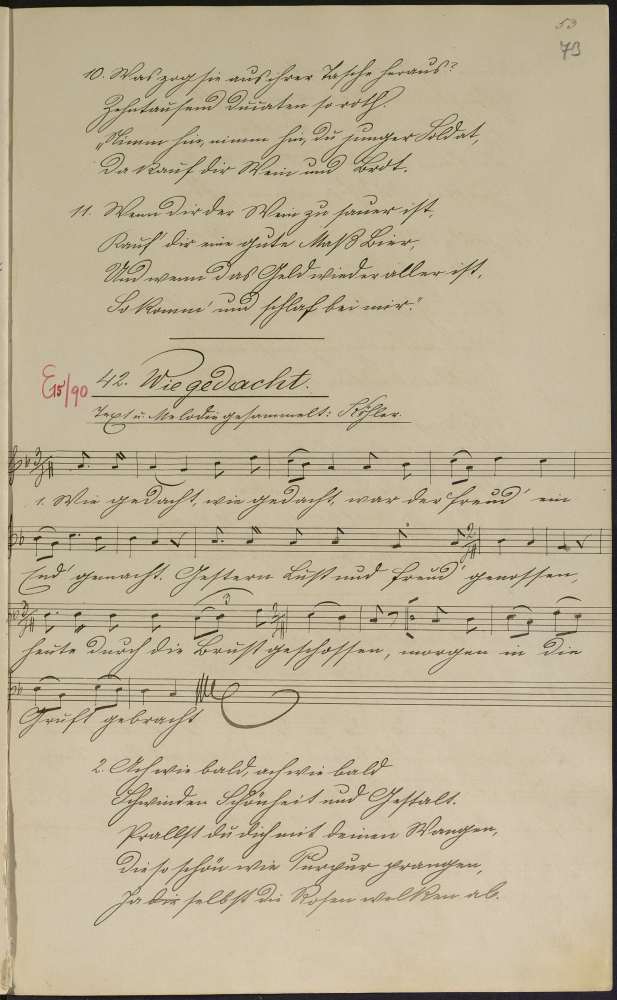 53
73
10. Was zog sie aus ihrer Tasche heraus?
Zehntausend Duĉaten so roth.
„Nimm hin, nimm hin, du junger Soldat,
Da kauf dir Wein und Brot.
11. Wenn dir der Wein zu sauer ist,
Kauf dir eine gute Maß Bier,
Und wenn das Geld wieder aller ist,
So komm' und schlaf bei mir."
E15/90 42. Wie gedacht.
Text u. Melodie gesammelt: Köhler.
1. Wie gedacht, wie gedacht, war der Freud' ein
End' gemacht. Gestern Lust und Freud' genossen,
heute durch die Brust geschossen, morgen in die
Gruft gebracht
2. Ach wie bald, ach wie bald
Schwinden Schönheit und Gestalt.
Prallst du dich mit deinen Wangen,
die so schön wie Purpur prangen,
Ja die selbst die Rosen welken ab.